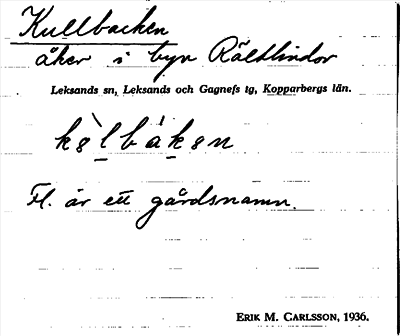 Kullbacken
åker i byn Rältlindor
Leksands sn, Leksands och Gagnefs tg, Kopparbergs län.
Fl. är ett gårdsnamn.
ERIK M. CARLSSON, 1936.